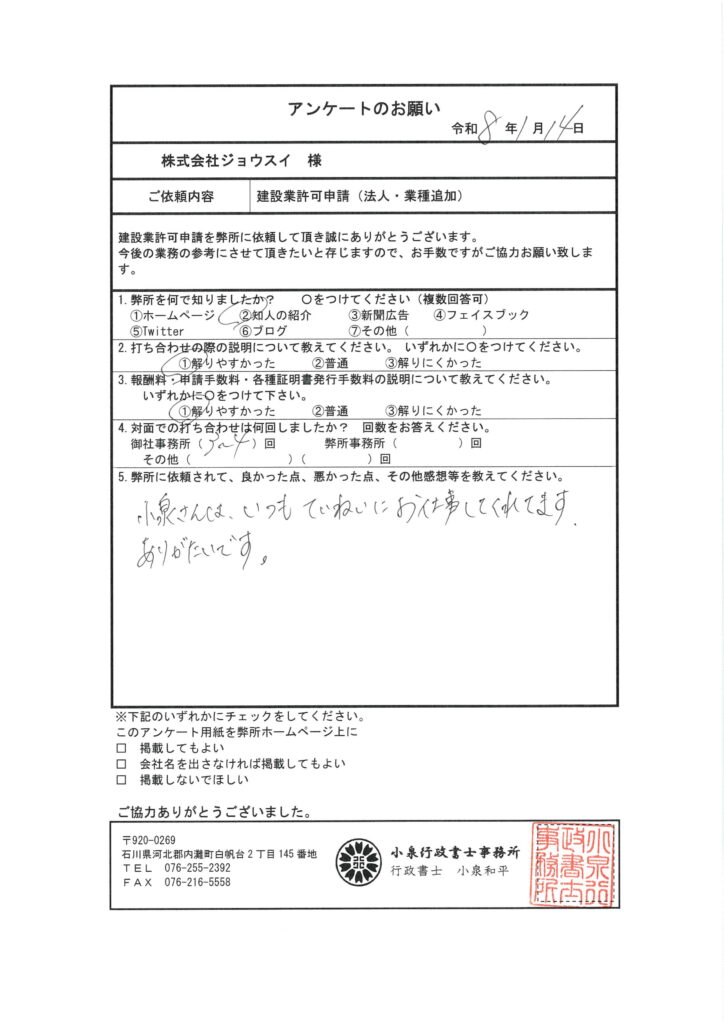 アンケートのお願い
令和8年1月14日
株式会社ジョウスイ 様
ご依頼内容 建設業許可申請(法人・業種追加)
建設業許可申請を弊所に依頼して頂き誠にありがとうございます。
今後の業務の参考にさせて頂きたいと存じますので、お手数ですがご協力お願い致しま
す。
1.弊所を何で知りましたか? ○をつけてください(複数回答可)
①ホームページ ②知人の紹介 ③新聞広告 ④フェイスブック
⑤Twitter ⑥ブログ ⑦その他( )
2.打ち合わせの際の説明について教えてください。 いずれかに○をつけてください。
①解りやすかった ②普通 ③解りにくかった
3.報酬料・申請手数料・各種証明書発行手数料の説明について教えてください。
いずれかに○をつけて下さい。
①解りやすかった ②普通 ③解りにくかった
4.対面での打ち合わせは何回しましたか? 回数をお答えください。
御社事務所(3~4)回 弊所事務所( )回
その他( )( )回
5.弊所に依頼されて、良かった点、悪かった点、その他感想等を教えてください。
小泉さんは、いつもていねいにお仕事してくれてます
ありがたいです。
※下記のいずれかにチェックをしてください。
このアンケート用紙を弊所ホームページ上に
□ 掲載してもよい
□ 会社名を出さなければ掲載してもよい
□ 掲載しないでほしい
ご協力ありがとうございました。
〒920-0269
石川県河北郡内灘町白帆台2丁目145番地
TEL 076-255-2392
FAX 076-216-5558
小泉行政書士事務所
行政書士 小泉和平
小泉行
政書士
事務所